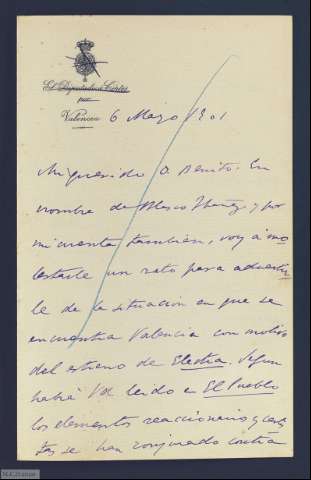 El Diputado a Cortes
por
Valencia 6 Mayo 1901
Mi querido D. Benito. En
nombre de Blasco Ibañez y por
mi cuenta tambien, voy á mo
lestarle un rato para advertir
le de la situacion en que se
encuentra Valencia con motivo
del estreno de Electra. Segun
habrá Vd leido en El Pueblo
los elementos reaccionarios y carlis
tas se han conjurado contra